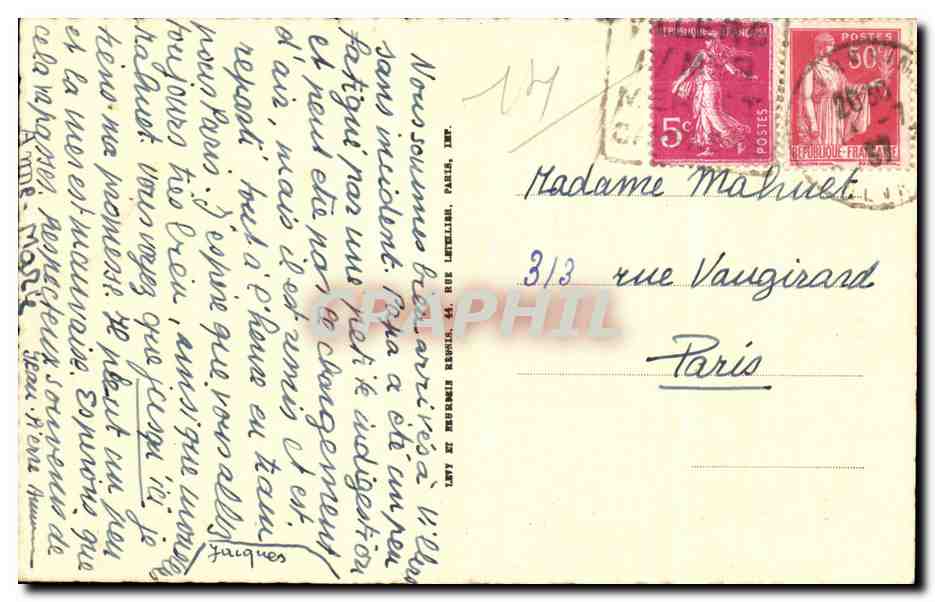 Nous sommes bien arrivés à Villers
sans incident. Papa a été un peu
fatigué par une petite indigestion
et peut être par le changement
d'air, mais il est remis et est
reparti tout à l'heure en train
pour Paris. J'espère que vous allez
toujours très bien, ainsi que
Mahuet. Vous voyez que jusqu'ici je
tiens ma promesse. Il pleut un peu
et la mer est mauvaise. Espérons que
cela passe. Respectueux souvenirs de
Jean-Pierre
Anne Marie
Jacques
LEVY ET NEURDEIN RÉUNIS, 44, RUE LETELLIER, PARIS, IMP.
14
RÉPUBLIQUE FRANÇAISE
5c
POSTES
POSTES
50c
RÉPUBLIQUE FRANÇAISE
Madame Mahuet
313 rue Vaugirard
Paris
CPAPHIL